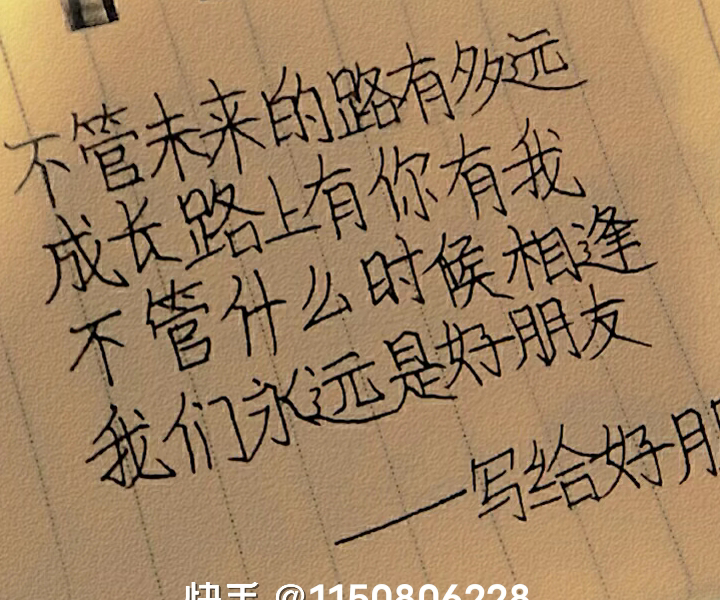 不管未来的路有多远
成长路上有你有我
不管什么时候相逢
我们永远是好朋友
——写给好朋
快手 @1150806228